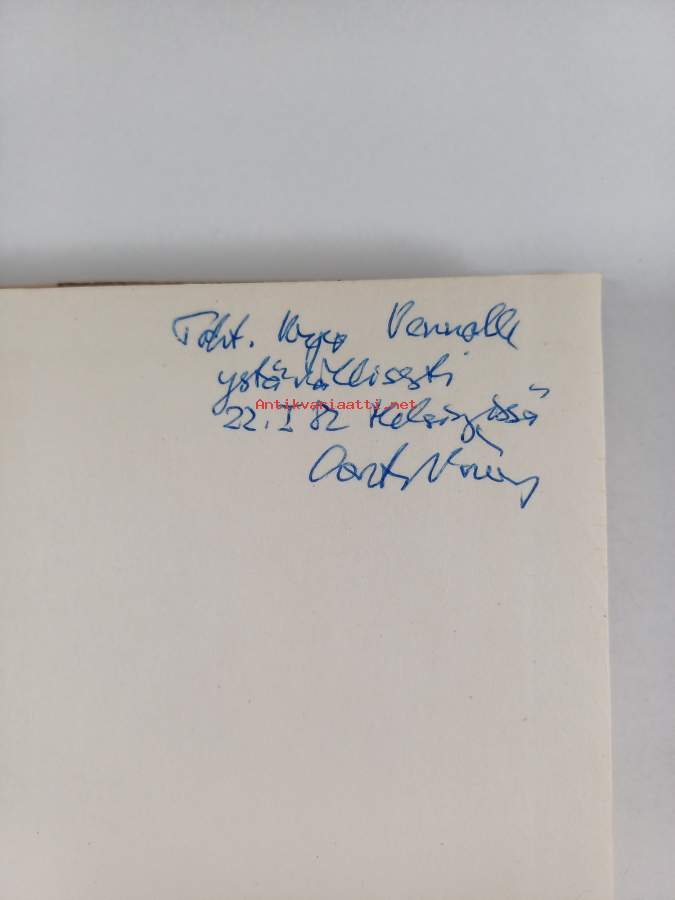 Toht. Vennalle
ystävällisesti
Antikvariaatti.net
22.I 82 Helsingissä